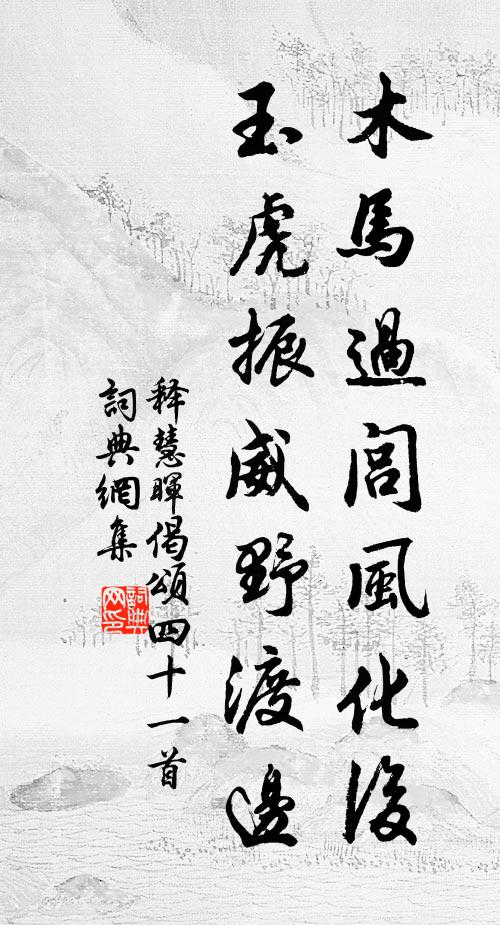 木馬過閻風化後
玉虎振威野渡邊
释慧暉偈頌四十一首
詞典網集
詞典網印